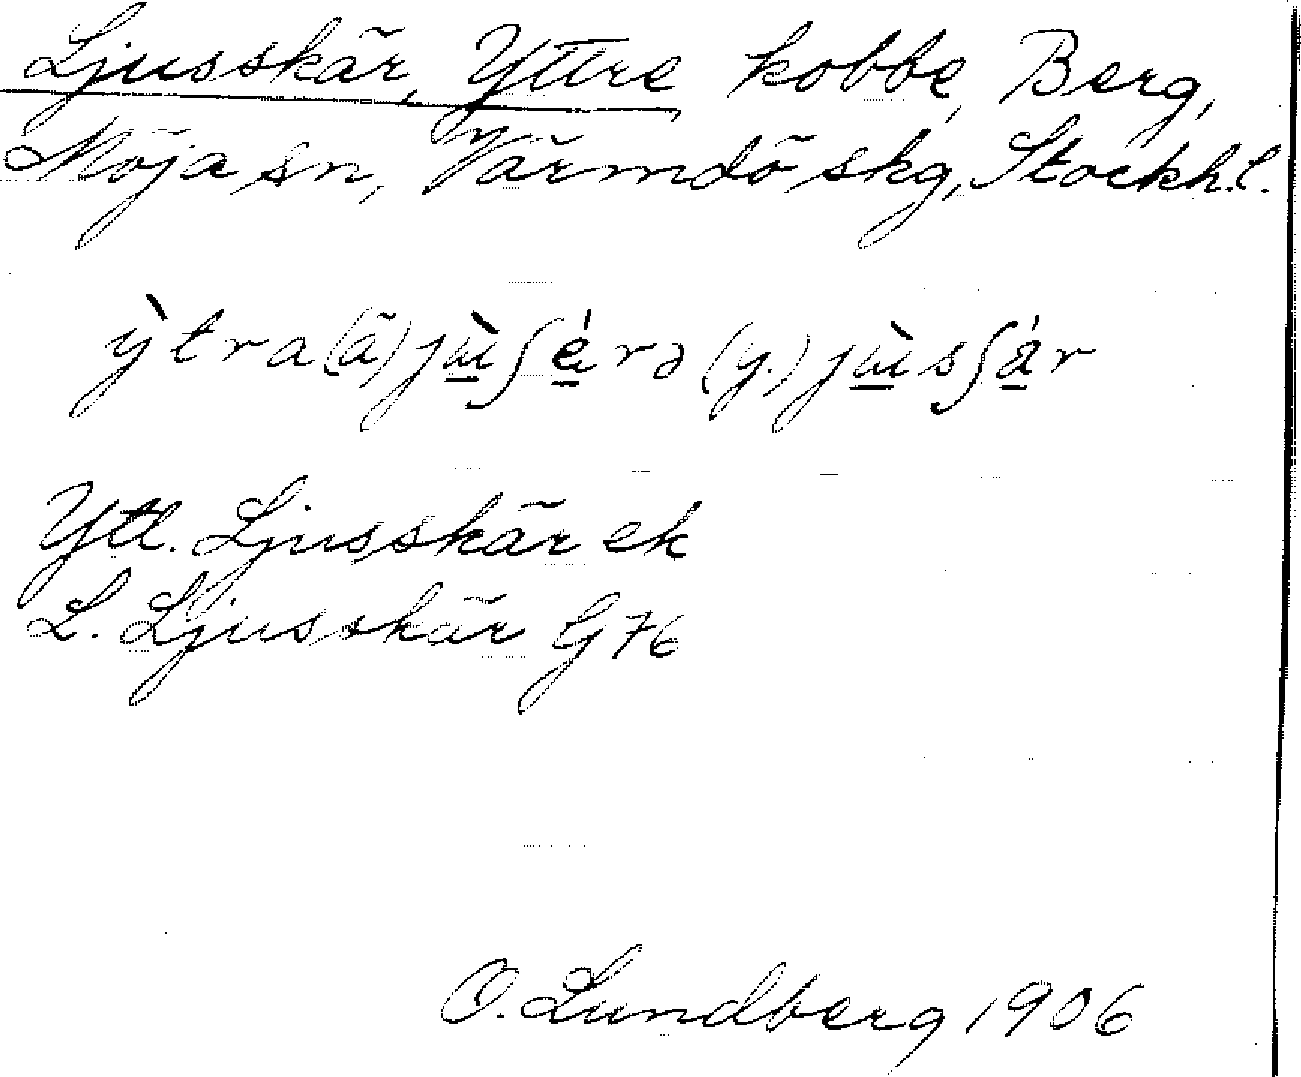 Ljusskär, Yttre kobbe, Berg,
Möja sn, Värmdö skg, Stockh. l.
ỳtra (ä) jɯ̀ʃérə (y.) jɯ̀sʃár
Ytl. Ljusskär ek
L. Ljusskär G 76
O. Lundberg 1906